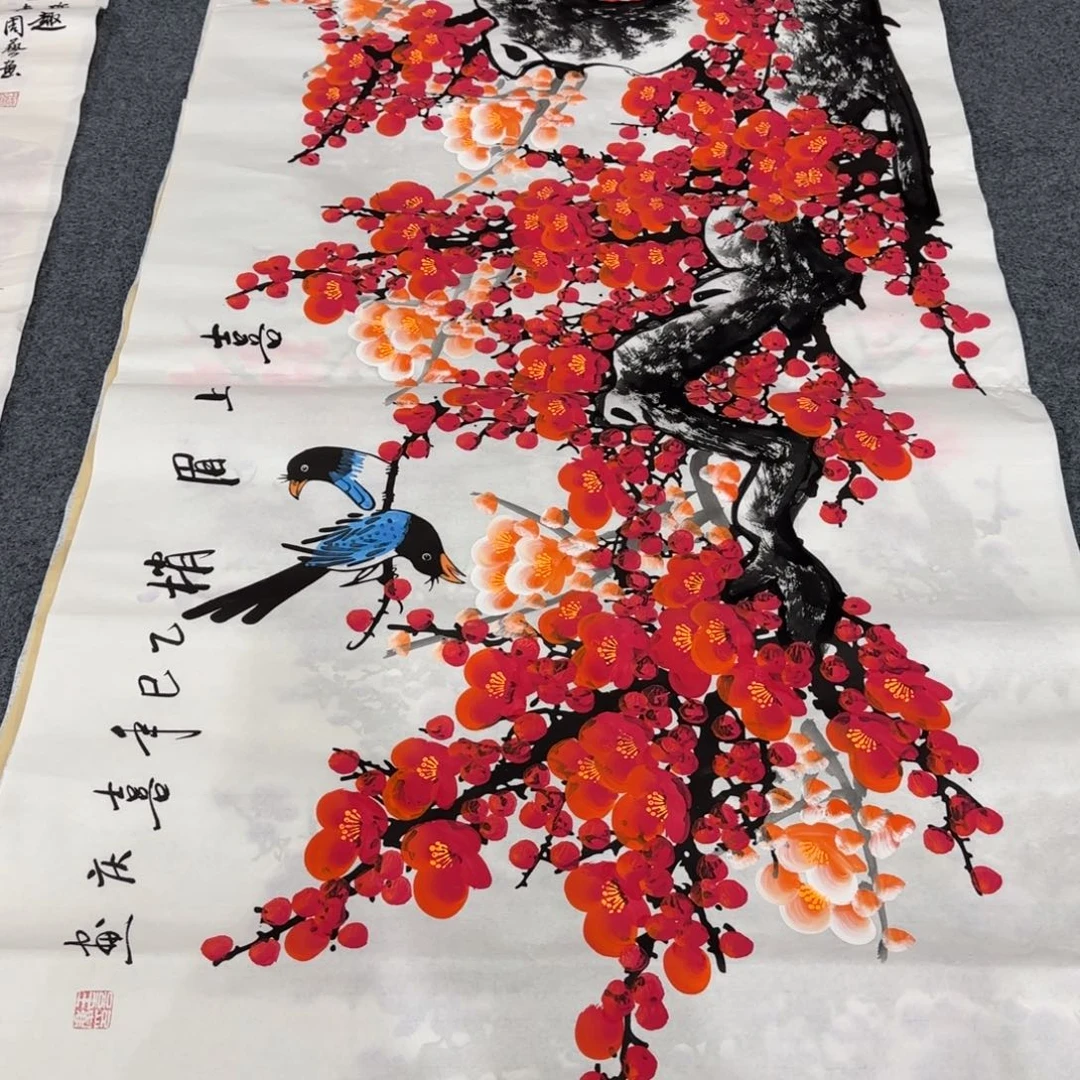 喜上眉梢乙巳年喜庆画
趣
周